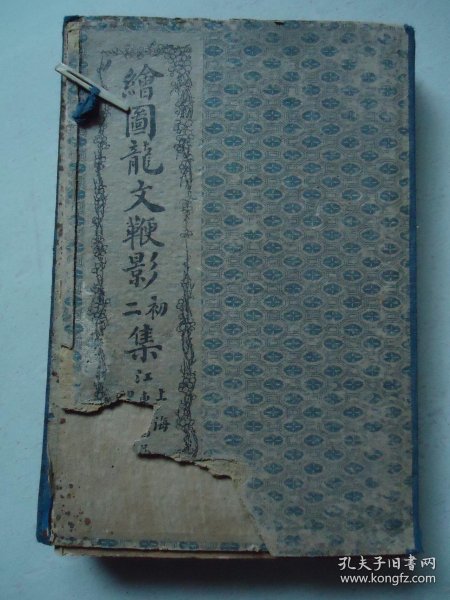 繪圖龍文鞭影初二集
上海
江東
孔夫子旧书网
www.kongfz.com